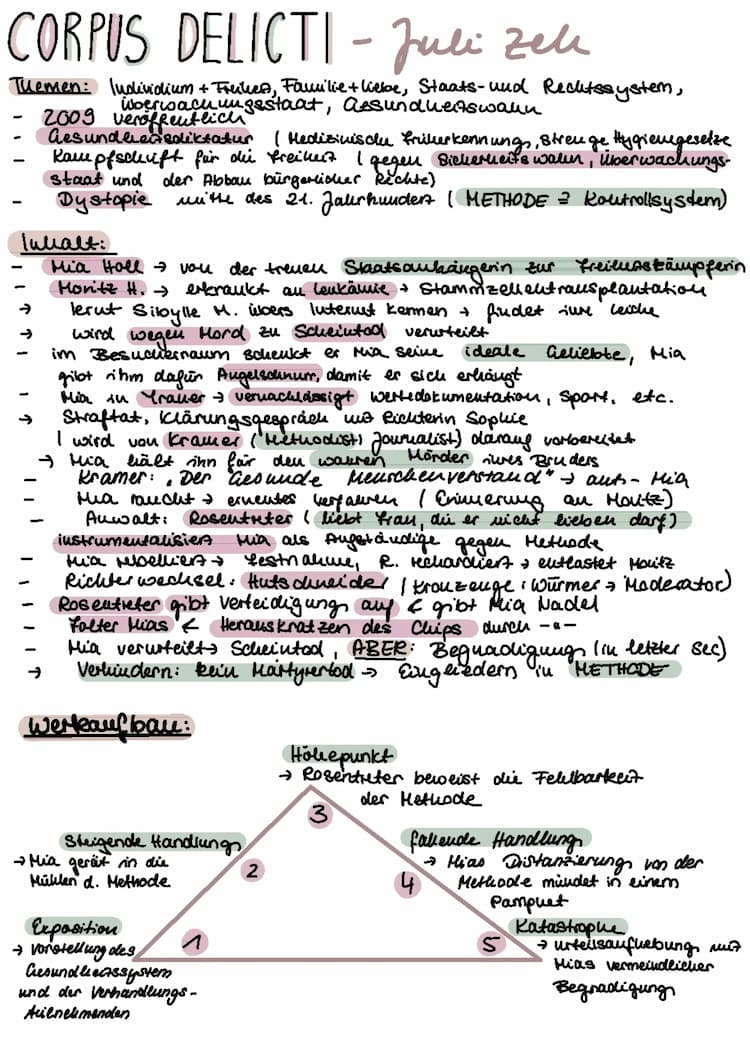 CORPUS DELICTI - Juli Zeh
Themen: Individium + Freiheit, Familie + Liebe, Staats- und Rechtssystem,
überwachungsstaat, Gesundheitswahn
- 2009 veröffentlich
- Gesundheitsdiktatur (Medizinische Früherkennung, strenge Hygienegesetze
- Kampfschrift für die Freiheit (gegen Sicherheitswahn, Überwachungs-
staat und der Abbau bürgerlicher Rechte)
- Dystopie mitte des 21. Jahrhundert (METHODE ≙ Kontrollsystem)
Inhalt:
- Mia Holl → von der treuen Staatsanhängerin zur Freiheitskämpferin
- Moritz H. → erkrankt an Leukämie → Stammzellentransplantation
→ lernt Sibylle M. übers Internet kennen → findet ihre Leiche
→ wird wegen Mord zu Scheintod verurteilt
- im Besucherraum schenkt er Mia seine ideale Geliebte, Mia
gibt ihm dafür Angelschnur, damit er sich erhängt
- Mia in Trauer → vernachlässigt Wertedokumentation, Sport, etc.
→ Straftat, Klärungsgespräch mit Richterin Sophie
( wird von Kramer (Methodist, Journalist) darauf vorbereitet
→ Mia hält ihn für den wahren Mörder ihres Bruders
- Kramer: „Der Gesunde Menschenverstand" → anti-Mia
- Mia raucht → erneutes verfahren (Erinnerung an Moritz)
- Anwalt: Rosentreter (liebt Frau, die er nicht lieben darf)
instrumentalisiert Mia als Aufständige gegen Methode
- Mia rebelliert → Festnahme, R. recherchiert → entlastet Moritz
- Richterwechsel: Hutschneider (Kronzeuge: Würmer → Moderator)
- Rosentreter gibt Verteidigung auf & gibt Mia Nadel
- Folter Mias & Herauskratzen des Chips durch -"-
- Mia verurteilt → Scheintod, ABER: Begnadigung (in letzter Sec)
→ Verhindern: kein Märtyrertod → Eingliedern in METHODE
Werkaufbau:
Höhepunkt
→ Rosentreter beweist die Fehlbarkeit
der Methode
3
Steigende Handlung
→ Mia gerät in die
Mühlen d. Methode
2
fallende Handlung
→ Mias Distanzierung von der
Methode mündet in einem
Pamphlet
4
Exposition
→ Vorstellung des
Gesundheitssystem
und der Verhandlungs-
teilnehmenden
1
Katastrophe
→ Urteilsaufhebung mit
Mias vermeindlicher
Begnadigung
5